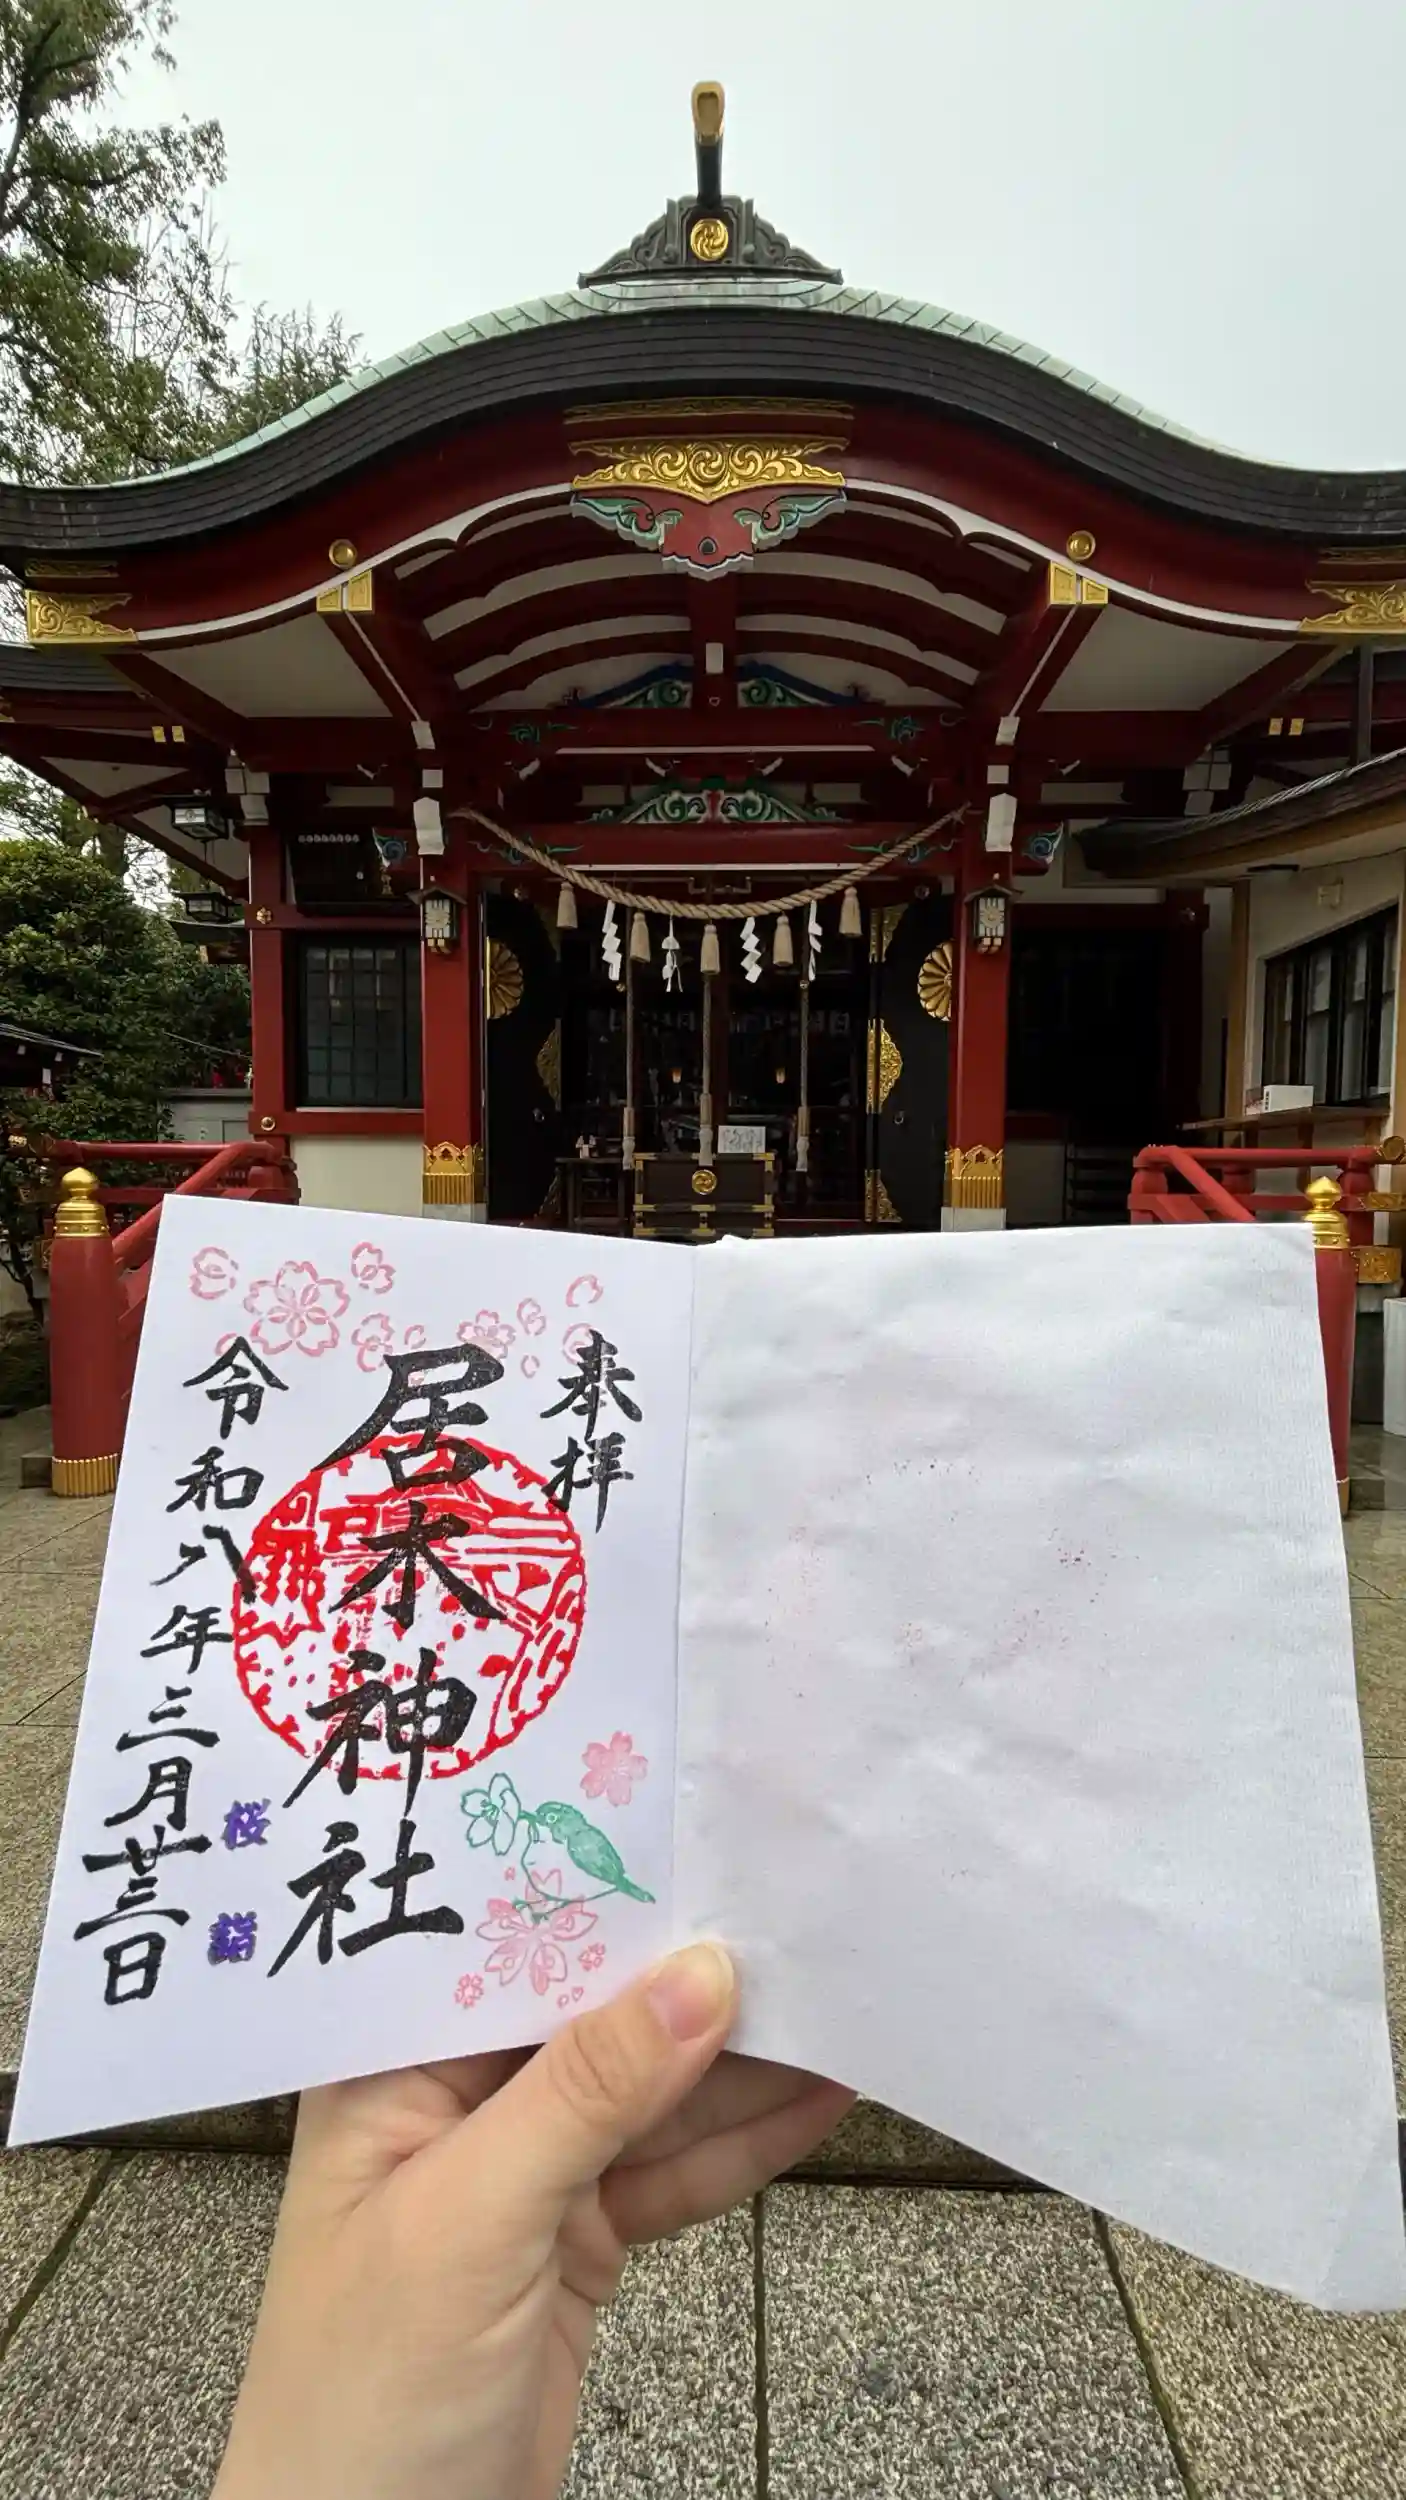 奉拝
居木神社
令和八年三月廿三日
桜詣